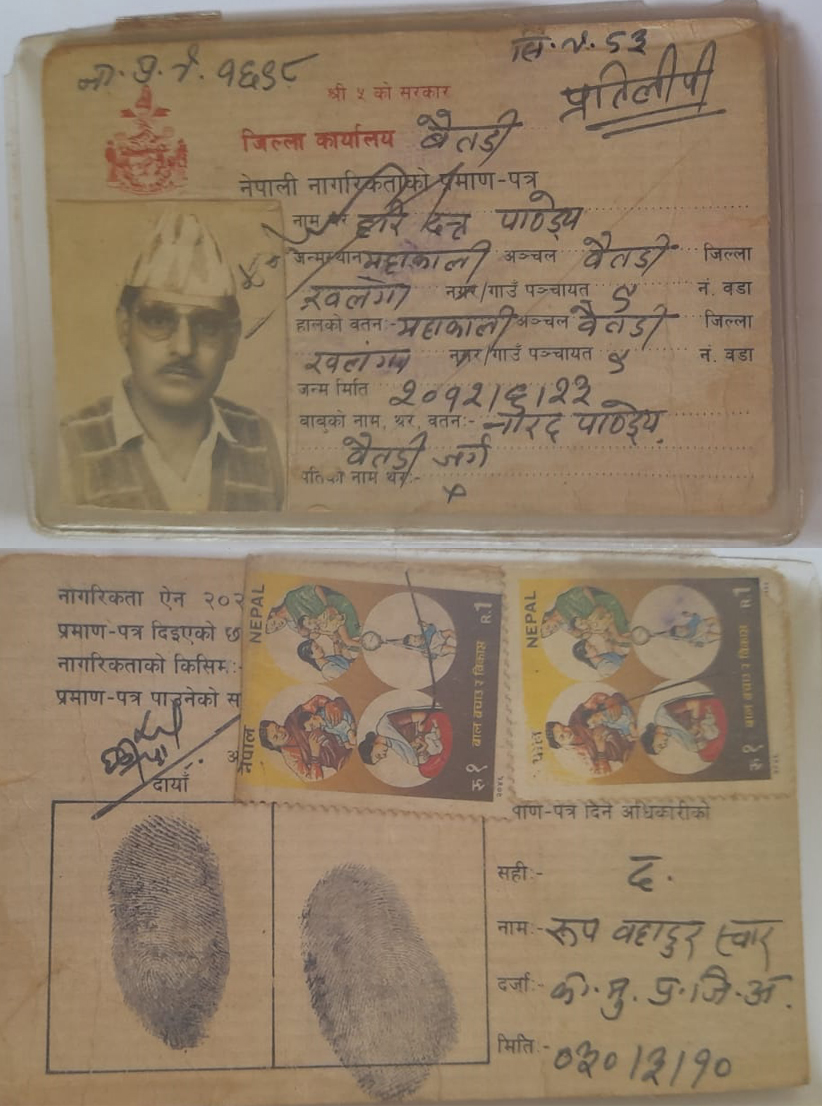 ना. प्र. नं. १६९८
सि.नं. ५३
प्रतिलीपी
श्री ५ को सरकार
जिल्ला कार्यालय बैतडी
नेपाली नागरिकताको प्रमाण-पत्र
नाम थर हरि दत्त पाण्डेय
जन्मस्थान महाकाली अञ्चल बैतडी जिल्ला
खलंगा नगर/गाउँ पञ्चायत ९ नं. वडा
हालको वतन:- महाकाली अञ्चल बैतडी जिल्ला
खलंगा नगर/गाउँ पञ्चायत ९ नं. वडा
जन्म मिति २०१२|६|२३
बाबुको नाम, थर, वतन:- नारद पाण्डेय
बैतडी
पतिको नाम थर:- ×
नागरिकता ऐन २०२
प्रमाण-पत्र दिइएको
नागरिकताको किसिम:-
प्रमाण-पत्र पाउनेको स
दायाँ
NEPAL
नेपाल
रु १ बाल बचाउ र विकास R.1
NEPAL
पाल
रु १ बाल बचाउ र विकास R.1
माण-पत्र दिने अधिकारीको
सही:- द.
नाम:- रूप बहादुर स्वार
दर्जा:- का. मु. प्र. जि. अ.
मिति:- ०३०|३|१०